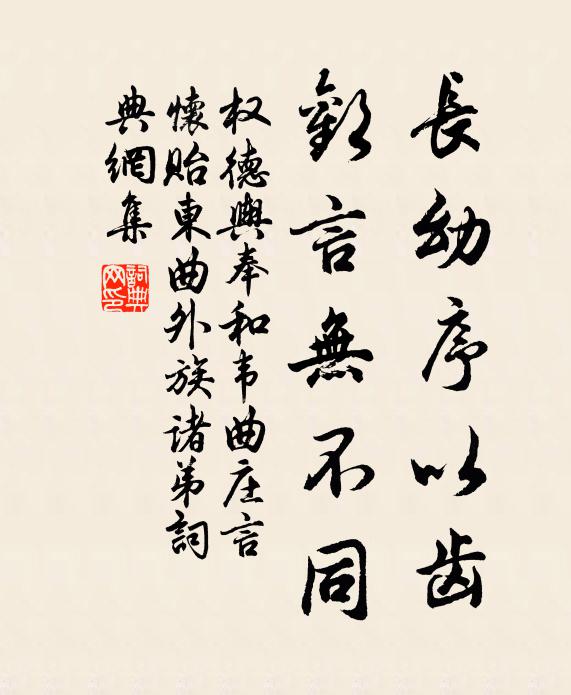 長幼序以齿
歡言無不同
权德輿奉和韦曲庄言
懷贻東曲外族诸弟詞
典網集
詞典网印